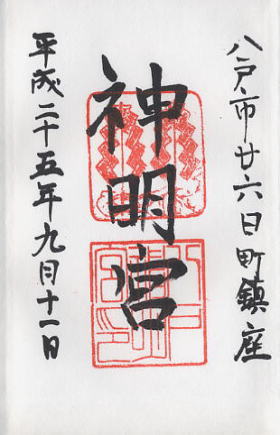 八戸市廿六日町鎮座
神明宮
平成二十五年九月十一日